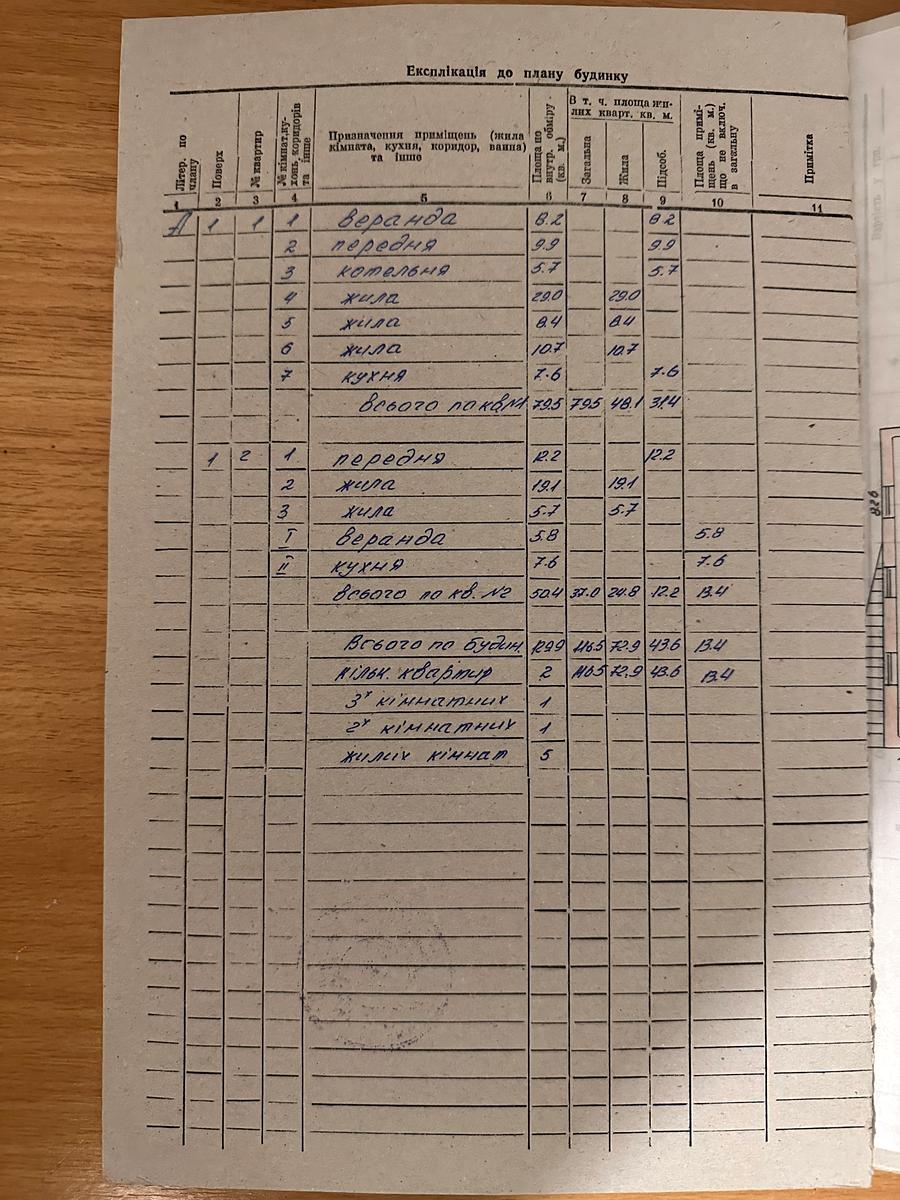 Експлікація до плану будинку
Літер. по плану
Поверх
№ квартир
№ кімнат, кухонь, коридорів та інше
Призначення приміщень (жила кімната, кухня, коридор, ванна) та інше
Площа по внутр. обміру (кв. м.)
В т. ч. площа жилих кварт. кв. м.
Загальна
Жила
Підсоб.
Площа приміщень (кв. м.) що не включ. в загальну
Примітка
1 2 3 4 5 6 7 8 9 10 11
А 1 1 1 веранда 8.2 8.2
2 передня 9.9 9.9
3 котельня 5.7 5.7
4 жила 29.0 29.0
5 жила 8.4 8.4
6 жила 10.7 10.7
7 кухня 7.6 7.6
всього по кв.№1 79.5 79.5 48.1 31.4
1 2 1 передня 12.2 12.2
2 жила 19.1 19.1
3 жила 5.7 5.7
I веранда 5.8 5.8
II кухня 7.6 7.6
всього по кв. №2 50.4 37.0 24.8 12.2 13.4
Всього по будин. 129.9 116.5 72.9 43.6 13.4
кільк. квартир 2 116.5 72.9 43.6 13.4
3х кімнатних 1
2х кімнатних 1
жилих кімнат 5
8.26